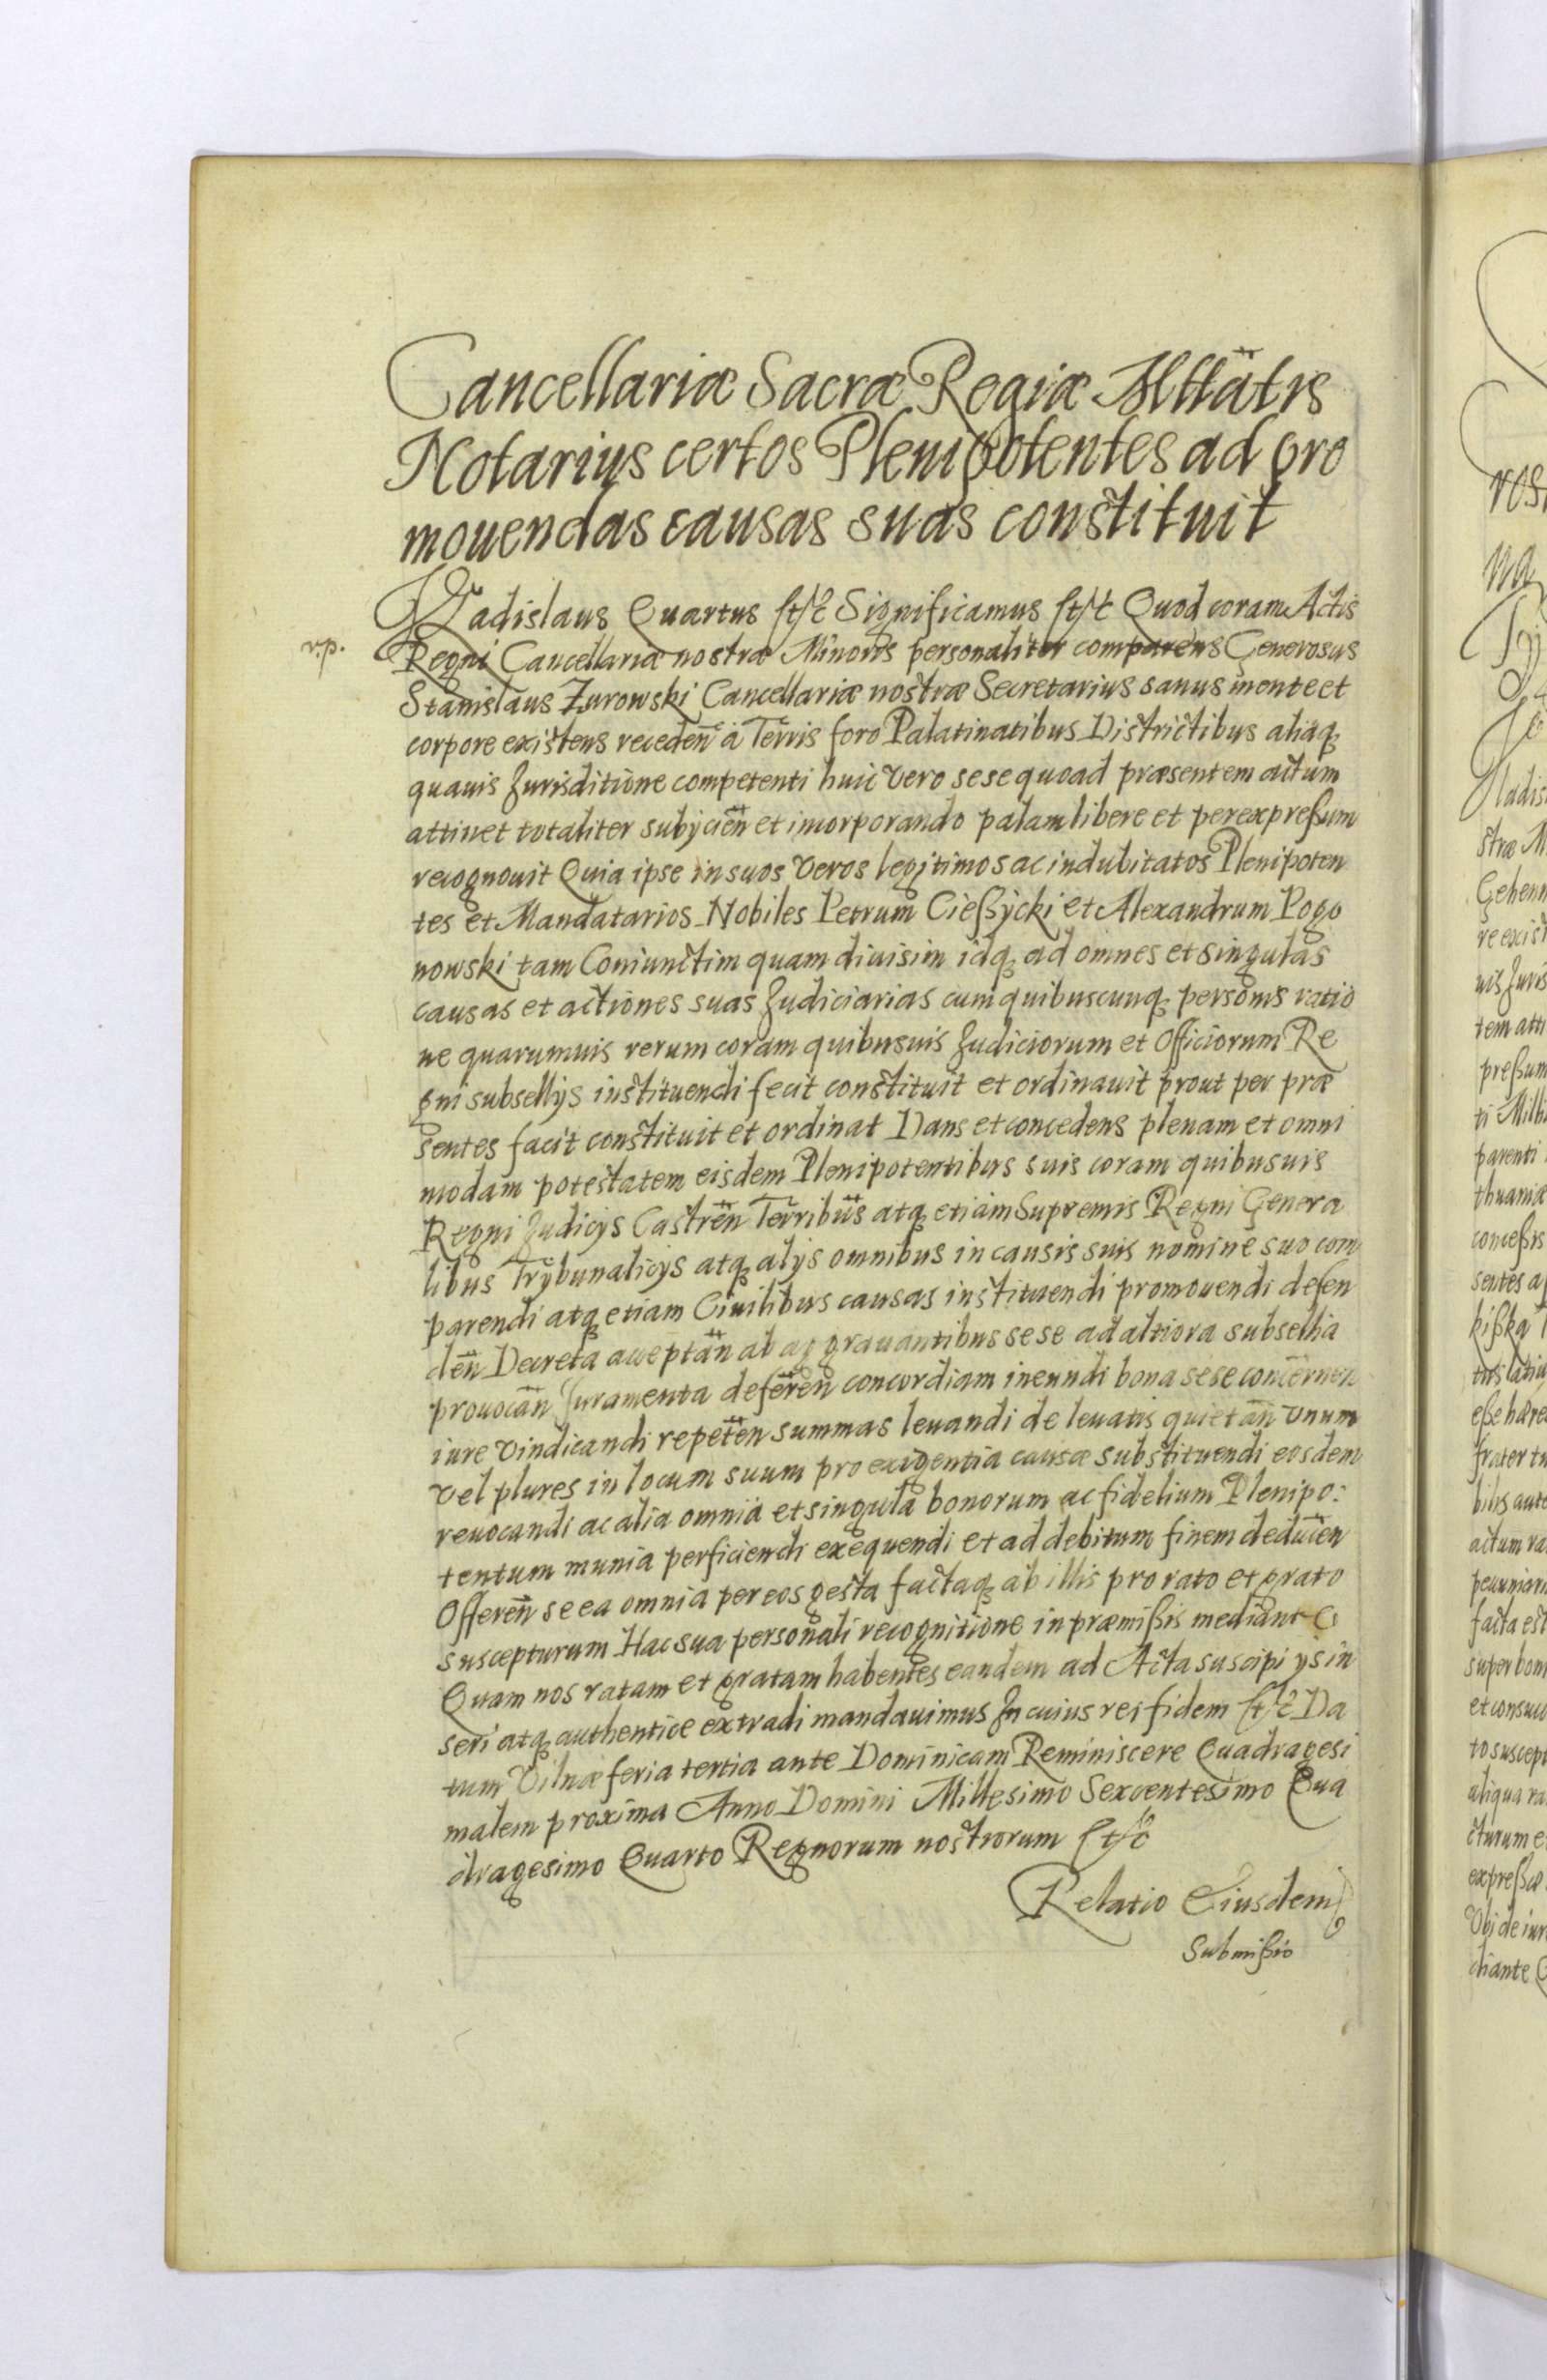 Cancellariæ Sacræ Regiæ Mttãtis
Notarius certos Plenipotentes ad pro
mouendas causas suas constituit
Vladislaus Quartus etc Significamus etc Quod coram Actis
v.p.
Regni Cancellariæ nostræ Minoris personaliter comparens Generosus
Stanislaus Zurowski Cancellariæ nostræ Secretarius sanus mente et
corpore existens receden̄ a Terris foro Palatinatibus Districtibus aliaq₃
quauis Jurisditione competenti huic vero sese quoad præsentem actum
attinet totaliter subÿcien̄ et incorporando palam libere et per expreßum
recognouit Quia ipse in suos veros legitimos ac indubitatos Plenipoten
tes et Mandatarios Nobiles Petrum Cießÿcki et Alexandrum Pogo
nowski tam Coniunctim quam diuisim idq₃ ad omnes et singulas
causas et actiones suas Judiciarias cum quibuscunq₃ personis ratio
ne quarumuis rerum coram quibusuis Judiciorum et Officiorum Re
gni subsellÿs instituendi fecit constituit et ordinauit prout per præ
sentes facit constituit et ordinat Dans et concedens plenam et omni
modam potestatem eisdem Plenipotentibus suis coram quibusuis
Regni Judicÿs Castren̄ Terribūs atq₃ etiam Supremis Regni Genera
libus Trÿbunalicÿs atq₃ alÿs omnibus in causis suis nomine suo com
parendi atq₃ etiam Ciuilibus causas instituendi promouendi defen
den̄ Decreta acceptan̄ ab aggrauantibus sese ad altiora subsellia
prouocan̄ Juramenta deferen̄ concordiam ineundi bona sese concernen
iure vindicandi repeten̄ summas leuandi de leuatis quietan̄ vnum
vel plures in locum suum pro exigentia causæ substituendi eosdem
reuocandi ac alia omnia et singula bonorum ac fidelium Plenipo:
tentum munia perficiendi exequendi et ad debitum finem deducen̄
Offeren̄ se ea omnia per eos gesta factaq₃ ab illis pro rato et grato
suscepturum Hac sua personali recognitione in præmißis mediante
Quam nos ratam et gratam habentes eandem ad Acta suscipi ÿs in
seri atq₃ authentice extradi mandauimus In cuius rei fidem etc Da
tum Vilnæ feria tertia ante Dominicam Reminiscere Quadragesi
malem proxima Anno Domini Millesimo Sexcentesimo Qua
dragesimo Quarto Regnorum nostrorum etc
Relatio Eiusdem
Submißio